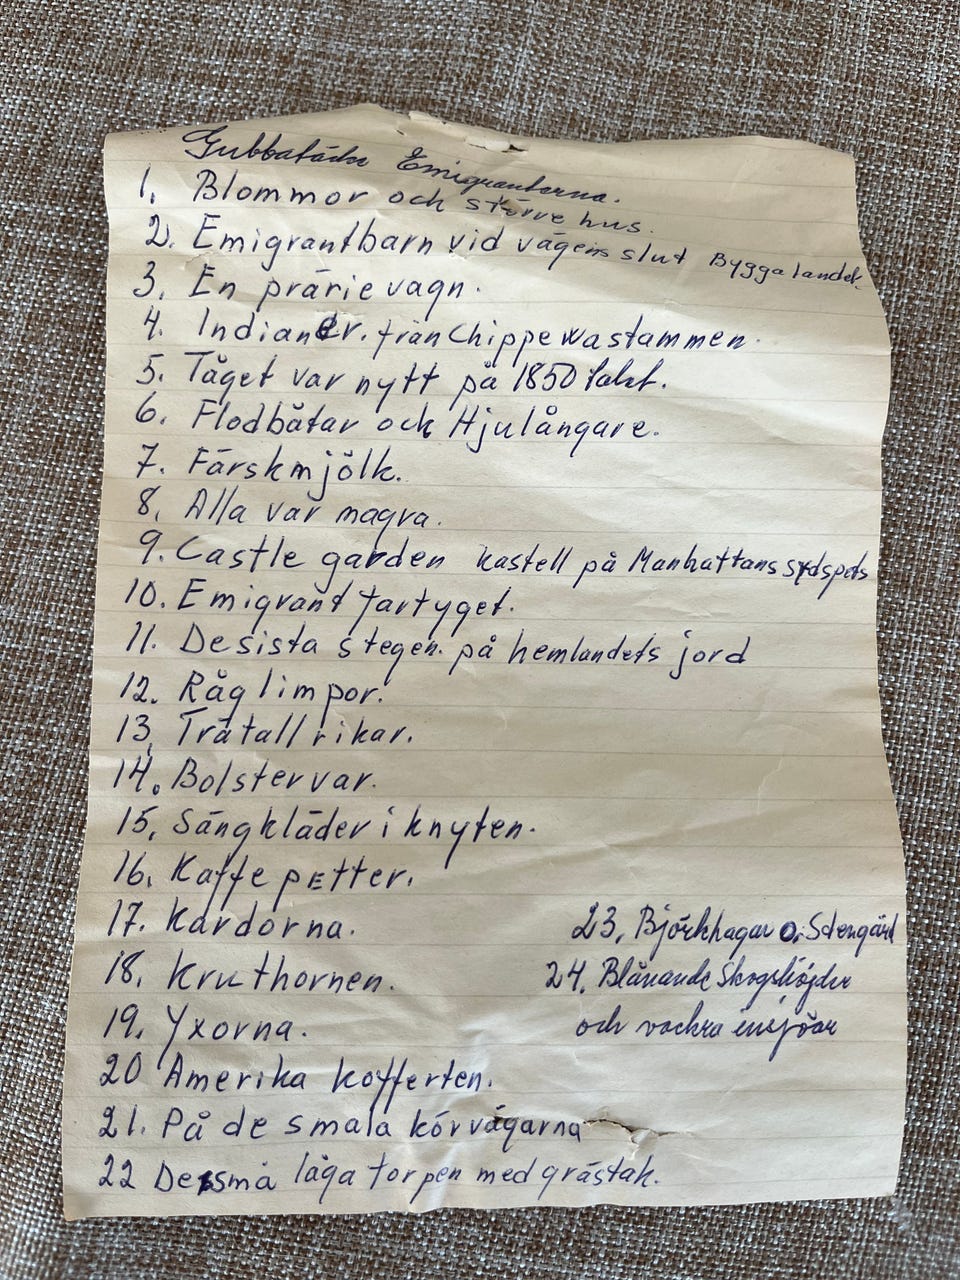 Gubbatäcke Emigranterna.
1. Blommor och större hus.
2. Emigrantbarn vid vägens slut Bygga landet.
3. En prärievagn.
4. Indianer. från Chippewastammen.
5. Tåget var nytt på 1850 talet.
6. Flodbåtar och Hjulångare.
7. Färskmjölk.
8. Alla var magra.
9. Castle garden kastell på Manhattans sydspets
10. Emigrantfartyget.
11. De sista stegen på hemlandets jord
12. Råglimpor.
13. Trätallrikar.
14. Bolstervar.
15. Sängkläder i knyten.
16. Kaffepetter.
17. Kardorna.
18. Kruthornen.
19. Yxorna.
20 Amerika kofferten.
21. På de smala körvägarna
22 De små låga torpen med grästak.
23. Björkhagar o. Stengärd
24. Blånande Skogshöjder
och vackra insjöar